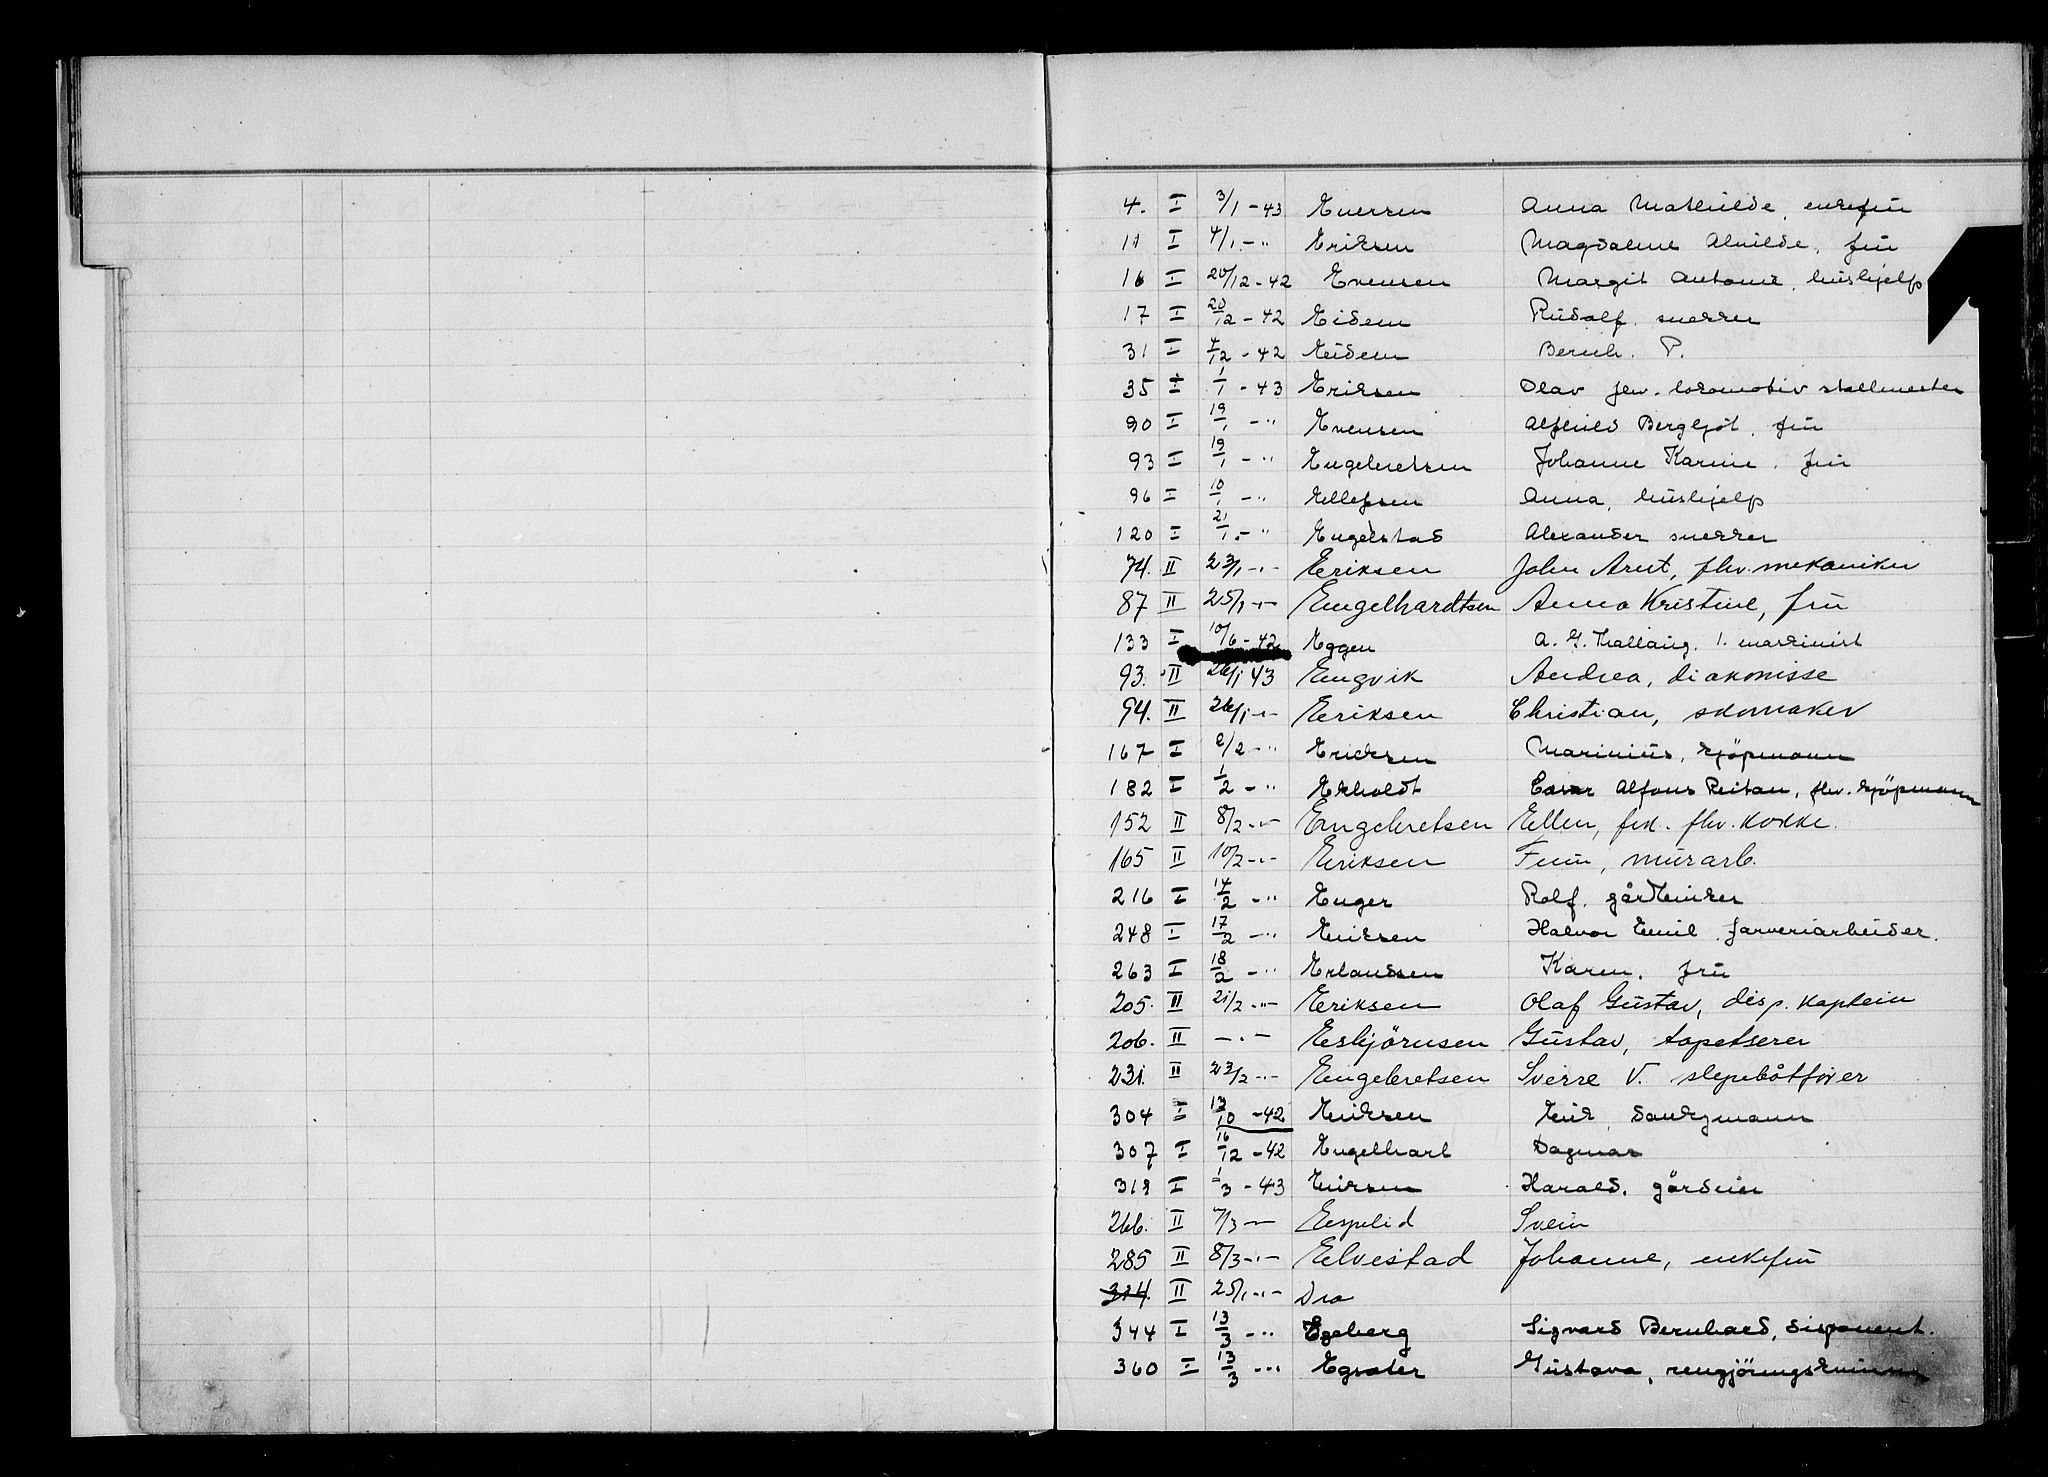 4. I 3/1 - 43 Enersen Anna Mathilde, enkefrú
11 I 4/1 - " Eriksen Magdalene Alvilde, frú
16 I 20/12 - 42 Evensen Margit Antonie, húshjelp
17 I 20/12 - 42 Eidem Rúdolf. snekker
31 I 4/12 - 42 Eidem Bernh. P.
35 I 1/1 - 43 Eriksen Olav fhv. lokomotiv stallmester
90 I 19/1 - " Evensen Alfhild Bergljot, frú
93 I 19/1 - " Engebretsen Johanne Karine, frú
96 I 10/1 - " Ellefsen Anna, húshjelp
120 I 21/1 - " Engelstad Alexander snekker
74. II 23/1 -"- Eriksen John Arnt, fhv. mekaniker
87 II 25/1 -"- Engelhardtsen Anna Kristine, frú
133 I 10/6 - 42 Eggen A. G. 1. maskinist
93. II 26/1 43 Engvik Andrea, diakonisse
94. II 26/1 -"- Eriksen Christian, skomaker
167 I 2/2 - " Ericksen Mariniús, kjöpmann
182 I 1/2 - " Ekholdt Alfons Reitan, fhv. kjöpmann
152 II 8/2 -"- Engebretsen Ellen, frk. fhv. kokke.
165 II 10/2 -"- Eriksen Finn, múrarb.
216 I 14/2 - " Enger Rolf, gårtneriker
248 I 17/2 - " Eriksen Halvor Emil, farveriarbeider.
263 I 18/2 - " Erlandsen Karen. frú
205. II 21/2 -"- Eriksen Olaf Gústav, disp. kaptein
206. II -"- Esbjörnsen Gústav, tapetserer
231. II 23/2 -"- Engebretsen Sverre V. slepebåtförer
304 I 13/10 - 42 Eriksen Erik,
307 I 16/12 - 42 Engelhart Dagmar
319 I 1/3 - 43 Eriksen Harald, gårdeier
266. II 7/3 - Espelid Svein
285 II 8/3 -"- Elvestad Johanne, enkefrú
314. II 25/1 -"- Dra
344 I 13/3 - " Egeberg Sigvard Bernhard, disponent.
360 I 13/3 - " Egsæter Gústava, rengjöringskvinne